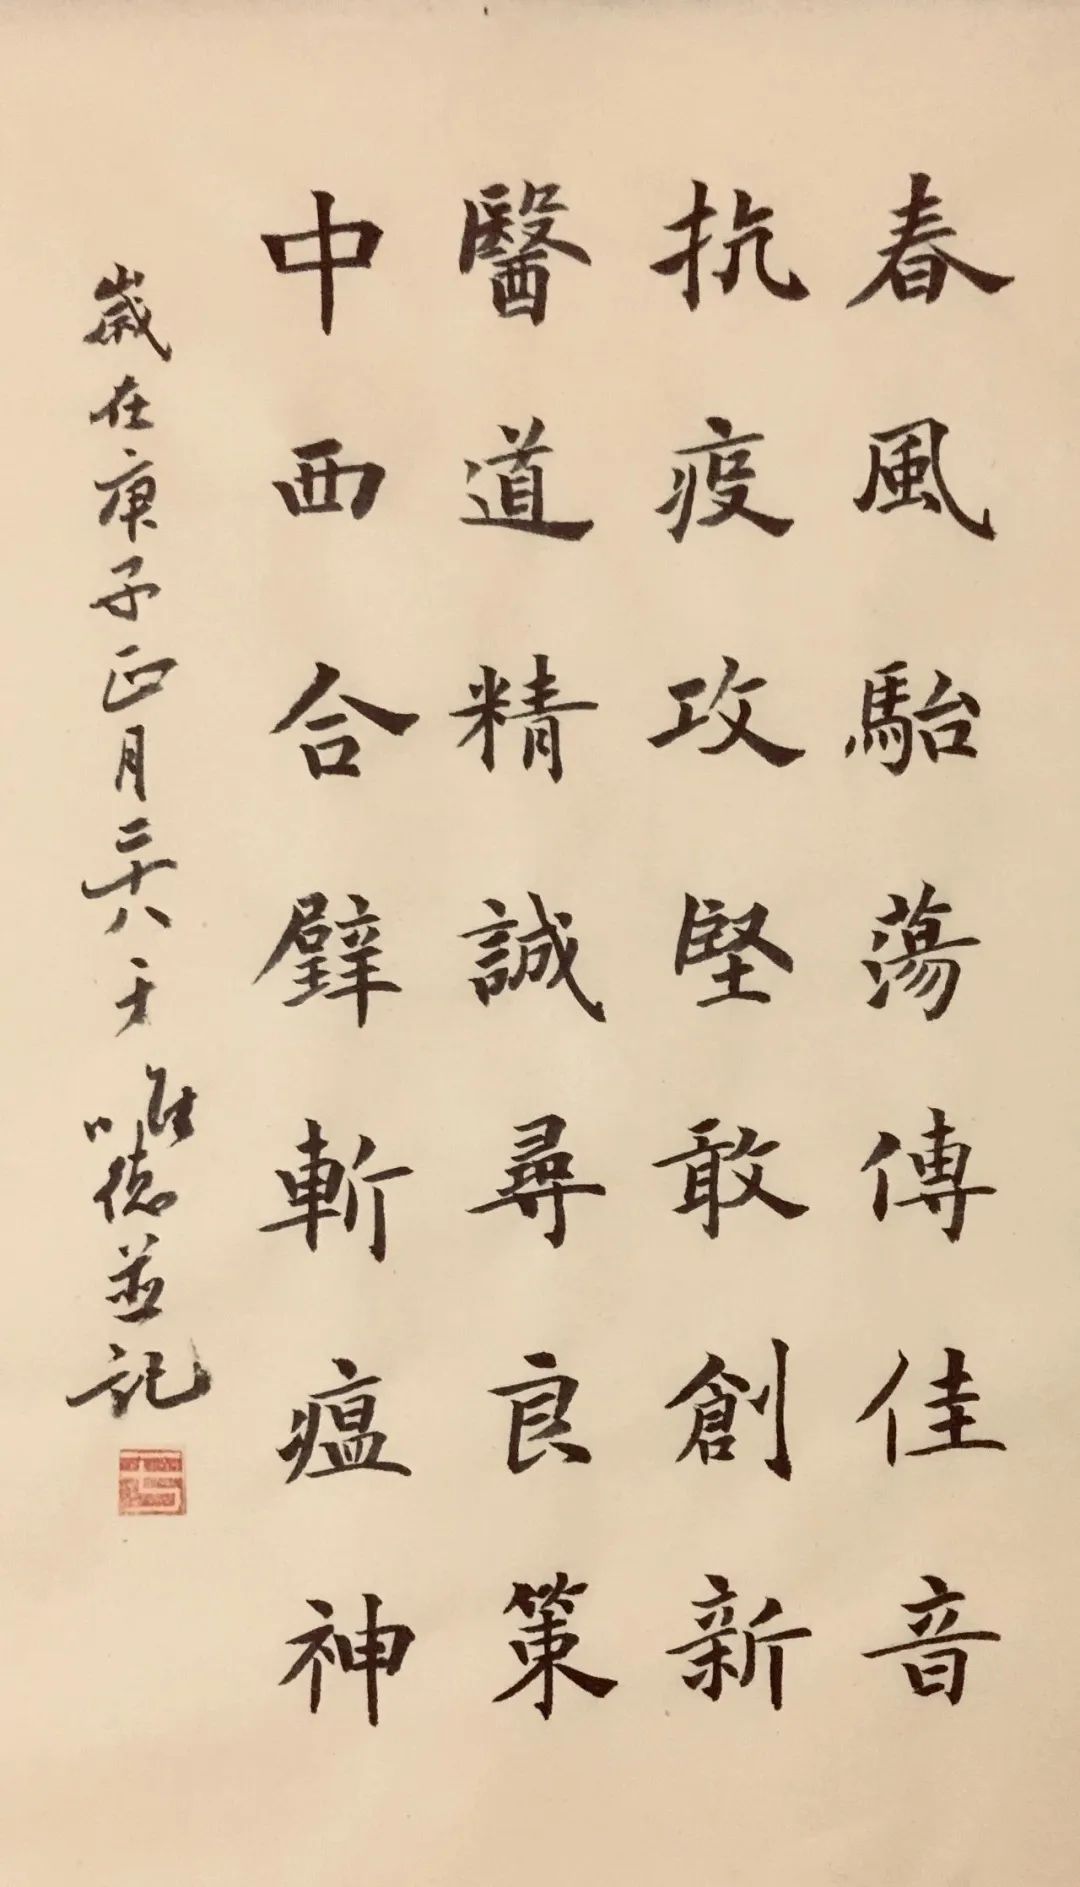 春風駘蕩傳佳音
抗疫攻堅敢創新
醫道精誠尋良策
中西合璧斬瘟神
歲在庚子正月二十八 唯德並記